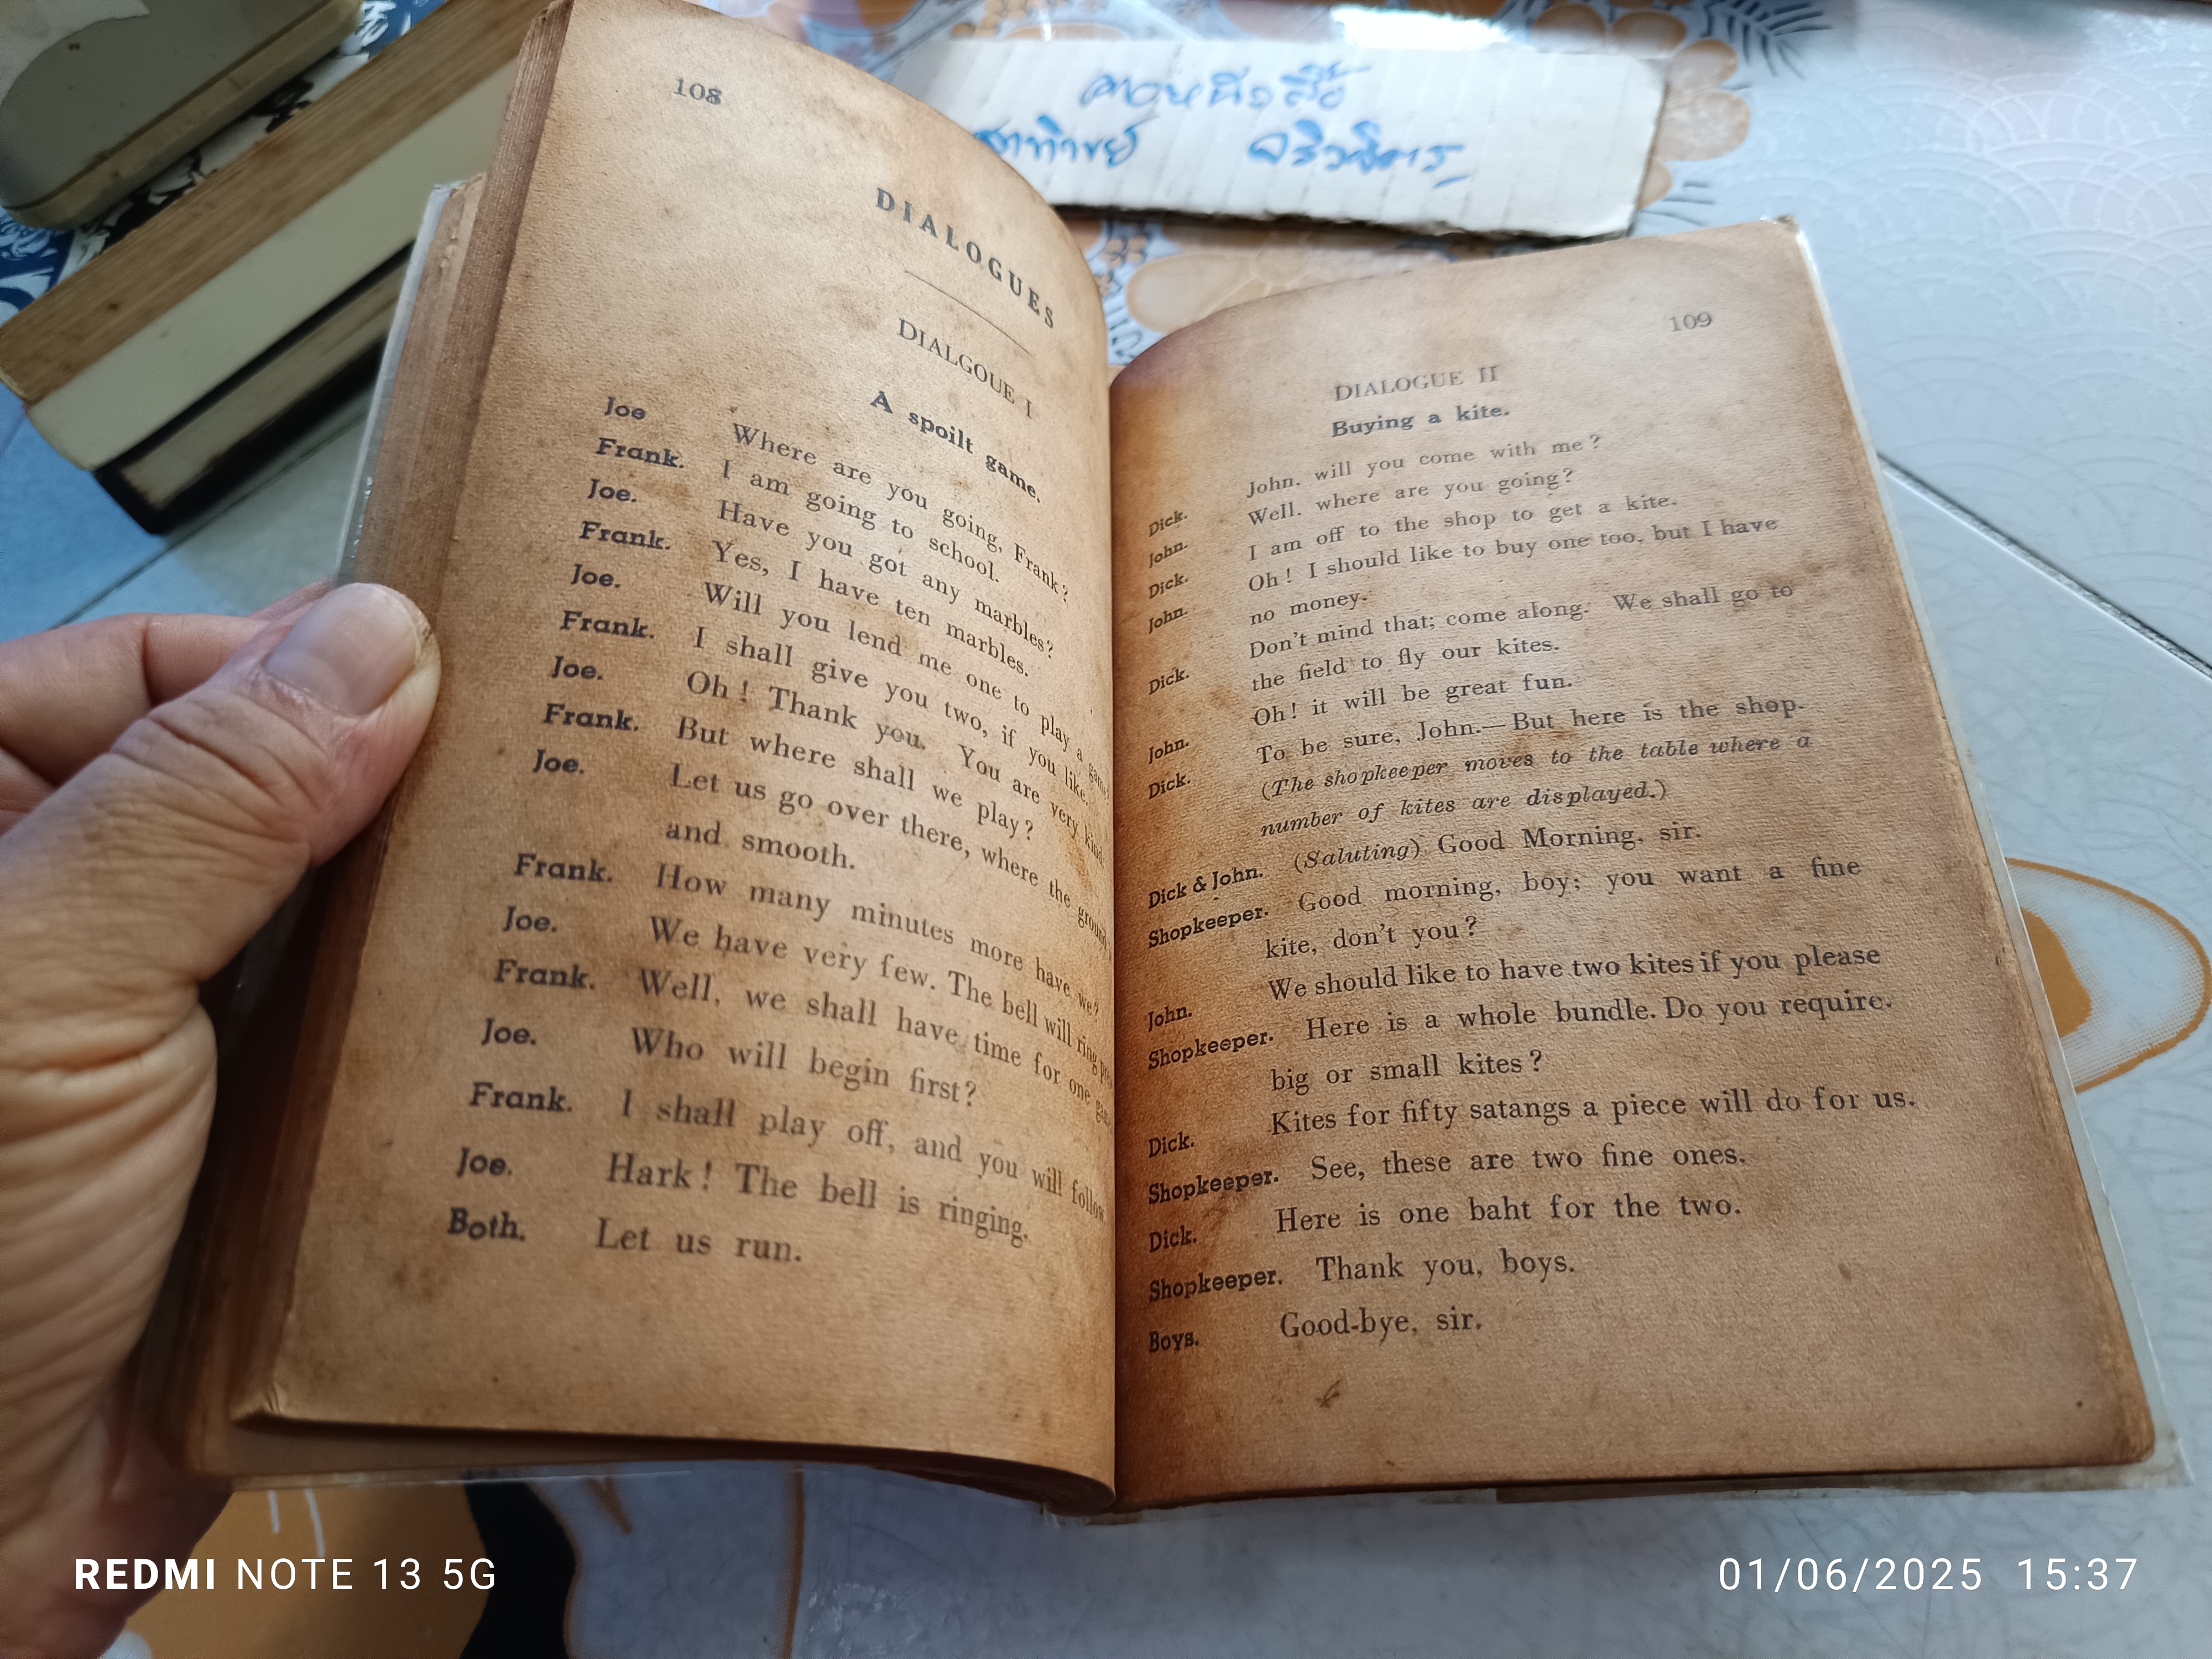 108
DIALOGUES
DIALGOUE I
A spoilt game.
Joe Where are you going, Frank?
Frank. I am going to school.
Joe. Have you got any marbles?
Frank. Yes, I have ten marbles.
Joe. Will you lend me one to play a game?
Frank. I shall give you two, if you like.
Joe. Oh! Thank you. You are very kind.
Frank. But where shall we play?
Joe. Let us go over there, where the ground
and smooth.
Frank. How many minutes more have we?
Joe. We have very few. The bell will ring
Frank. Well, we shall have time for one
Joe. Who will begin first?
Frank. I shall play off, and you will follow
Joe. Hark! The bell is ringing.
Both. Let us run.
109
DIALOGUE II
Buying a kite.
Dick. John. will you come with me?
John. Well. where are you going?
Dick. I am off to the shop to get a kite.
John. Oh! I should like to buy one too, but I have
no money.
Dick. Don't mind that; come along. We shall go to
the field to fly our kites.
John. Oh! it will be great fun.
Dick. To be sure, John.—But here is the shop.
(The shopkeeper moves to the table where a
number of kites are displayed.)
Dick & John. (Saluting) Good Morning, sir.
Shopkeeper. Good morning, boy; you want a fine
kite, don't you?
John. We should like to have two kites if you please
Shopkeeper. Here is a whole bundle. Do you require.
big or small kites?
Dick. Kites for fifty satangs a piece will do for us.
Shopkeeper. See, these are two fine ones.
Dick. Here is one baht for the two.
Shopkeeper. Thank you, boys.
Boys. Good-bye, sir.
REDMI NOTE 13 5G
01/06/2025 15:37